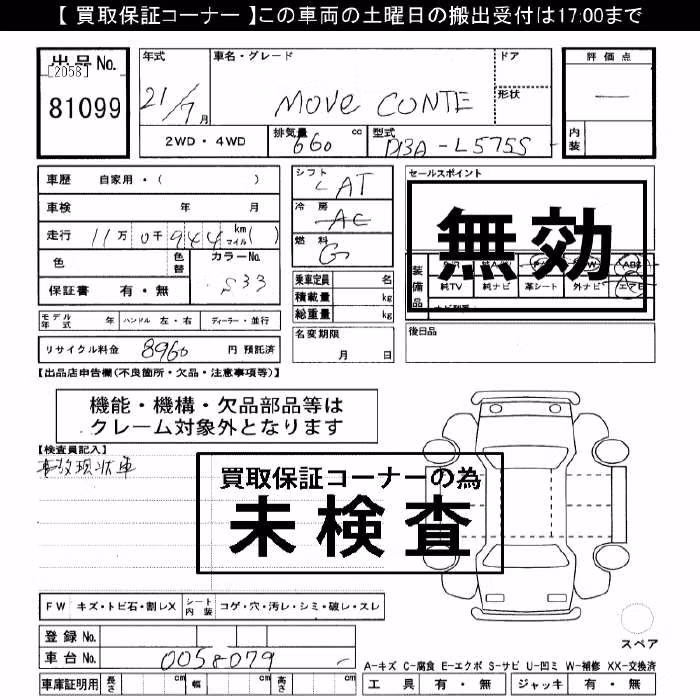 【 買取保証コーナー 】この車両の土曜日の搬出受付は17:00まで
出品No.
[2058]
81099
年式
21/7月
車名・グレード
MOVE CONTE
ドア
形状
評価点
—
内装
2WD・4WD
排気量 660 cc
型式 DBA-L575S
車歴 自家用・( )
車検 年 月
走行 11万 0千 944 km マイル ( )
色 色替 カラーNo. S33
保証書 有・無
シフト LAT
冷房 AC
燃料 G
乗車定員 名
積載量 kg
総重量 kg
セールスポイント
無効
装備品
純TV 純ナビ 革シート 外ナビ エアB
モデル年式 年 ハンドル 左・右 ディーラー・並行
リサイクル料金 8960 円 預託済
名変期限 月 日
後日品
【出品店申告欄(不良箇所・欠品・注意事項等)】
機能・機構・欠品部品等は
クレーム対象外となります
【検査員記入】
事故現状車
買取保証コーナーの為
未検査
FW キズ・トビ石・割レX シート内装 コゲ・穴・汚レ・シミ・破レ・スレ
登録No.
車台No. 0058079
スペア
A-キズ C-腐食 E-エクボ S-サビ U-凹ミ W-補修 XX-交換済
車庫証明用 長さ cm 幅 cm 高さ cm
工具 有・無 ジャッキ 有・無